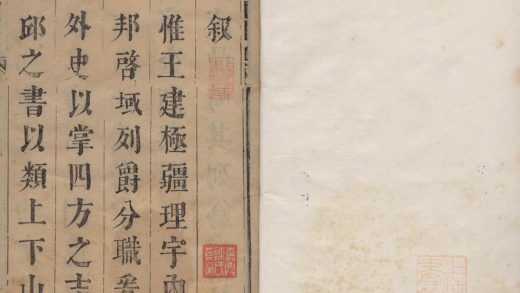 叙
惟王建極疆理宇內
邦啓域列爵分職
外史以掌四方之
邱之書以類上下